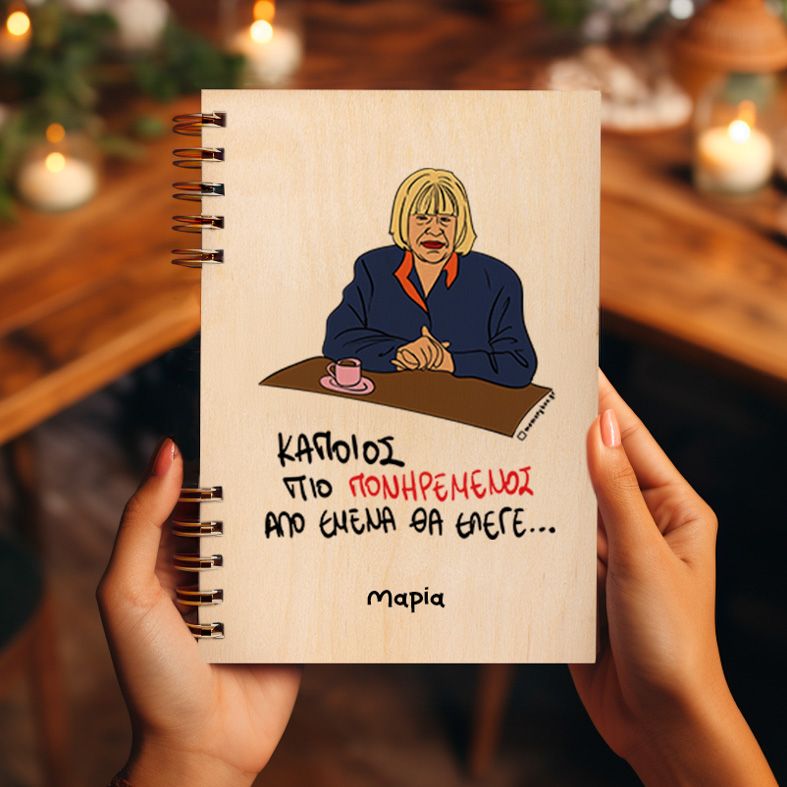 memorybox.gr
ΚΑΠΟΙΟΣ
ΠΙΟ ΠΟΝΗΡΕΜΕΝΟΣ
ΑΠΟ ΕΜΕΝΑ ΘΑ ΕΛΕΓΕ...
Μαρία